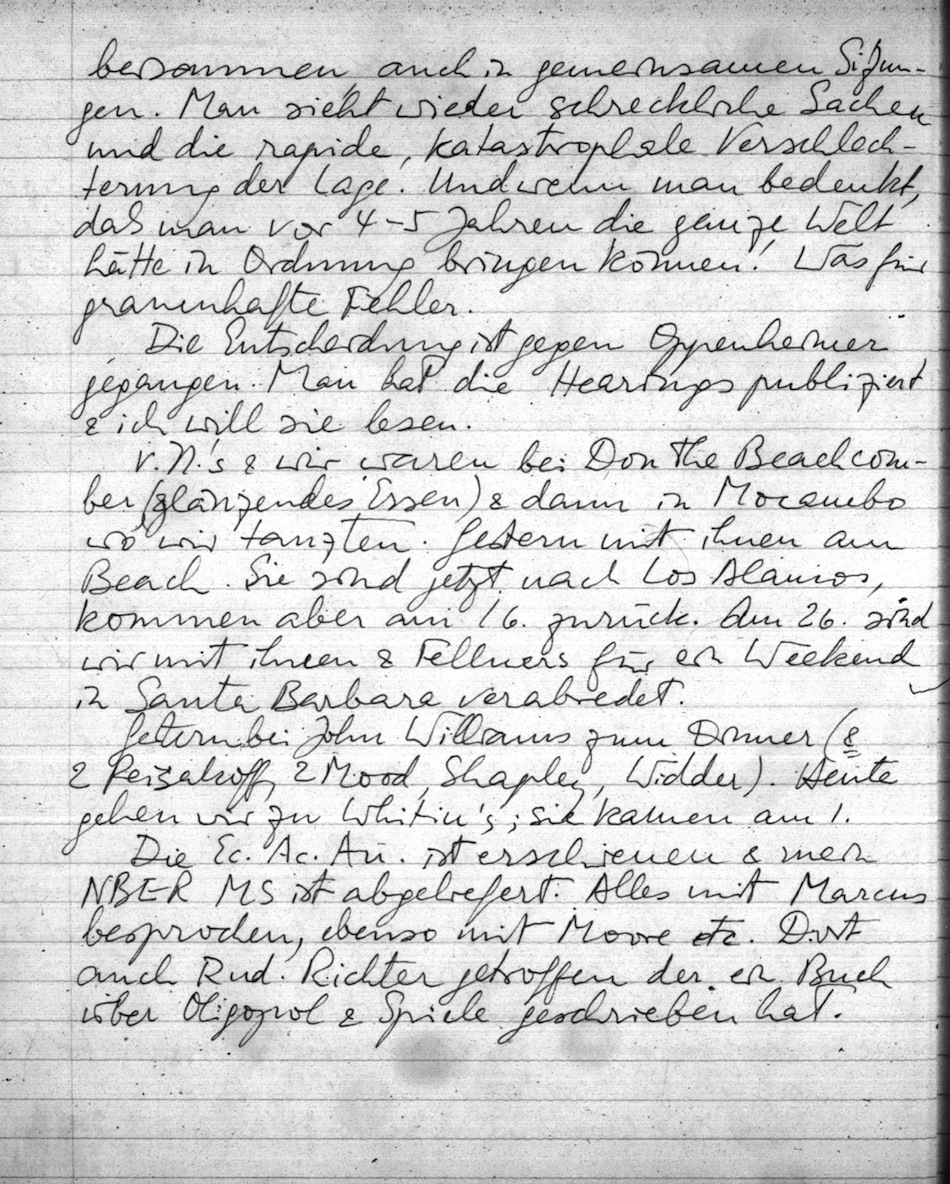 beisammen, auch in gemeinsamen Sitzun-
gen. Man sieht wieder schreckliche Sachen
und die rapide, katastrophale Verschlech-
terung der Lage. Und wenn man bedenkt,
dass man vor 4-5 Jahren die ganze Welt
hätte in Ordnung bringen können! Was für
grauenhafte Fehler.
Die Entscheidung ist gegen Oppenheimer
gegangen. Man hat die Hearings publiziert
& ich will sie lesen.
v. N.'s & wir waren bei Don the Beachcom-
ber (glänzendes Essen) & dann in Mocambo
wo wir tanzten. Gestern mit ihnen am
Beach. Sie sind jetzt nach Los Alamos,
kommen aber am 16. zurück. Am 26. sind
wir mit ihnen & Fellners für ein Weekend
in Santa Barbara verabredet.
Gestern bei John Williams zum Dinner (&
2 2 Mood, Shapley, Widder). Heute
gehen wir zu Whitin's; sie kamen am 1.
Die Ec. Ac. An. ist erschienen & mein
NBER MS ist abgeliefert. Alles mit Marcus
besprochen, ebenso mit Moore etc. Dort
auch Rud. Richter getroffen der ein Buch
über Oligopol & Spiele geschrieben hat.